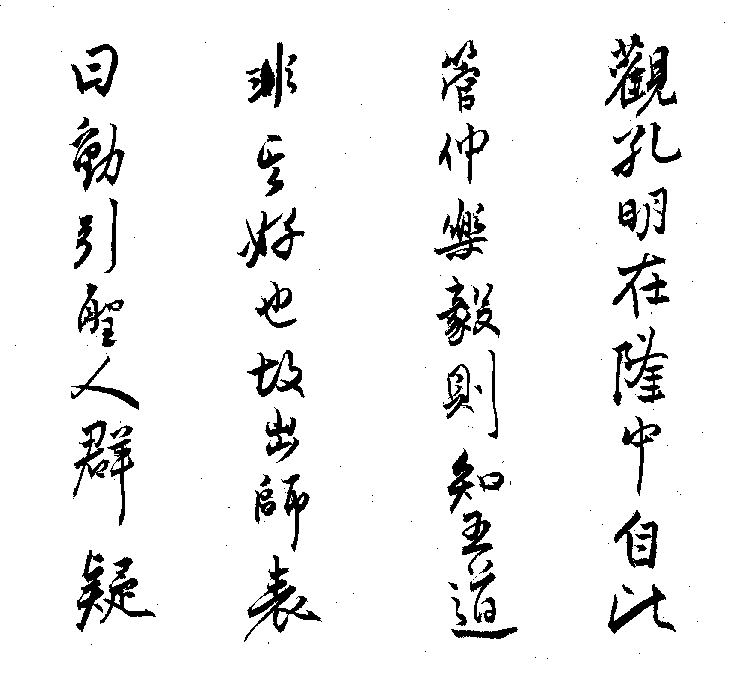 觀孔明在隆中自比
管仲樂毅則知王道
非其好也故出師表
曰動引聖人群疑